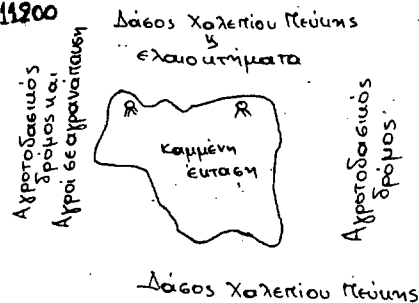 11200
Δάσος Χαλεπίου Πεύκης
κ
ελαιοκτήματα
Αγροτοδασικός
δρόμος και
Αγροί σε αγρανάπαυση
καμμένη
έκταση
Αγροτοδασικός
δρόμος
Δάσος Χαλεπίου Πεύκης